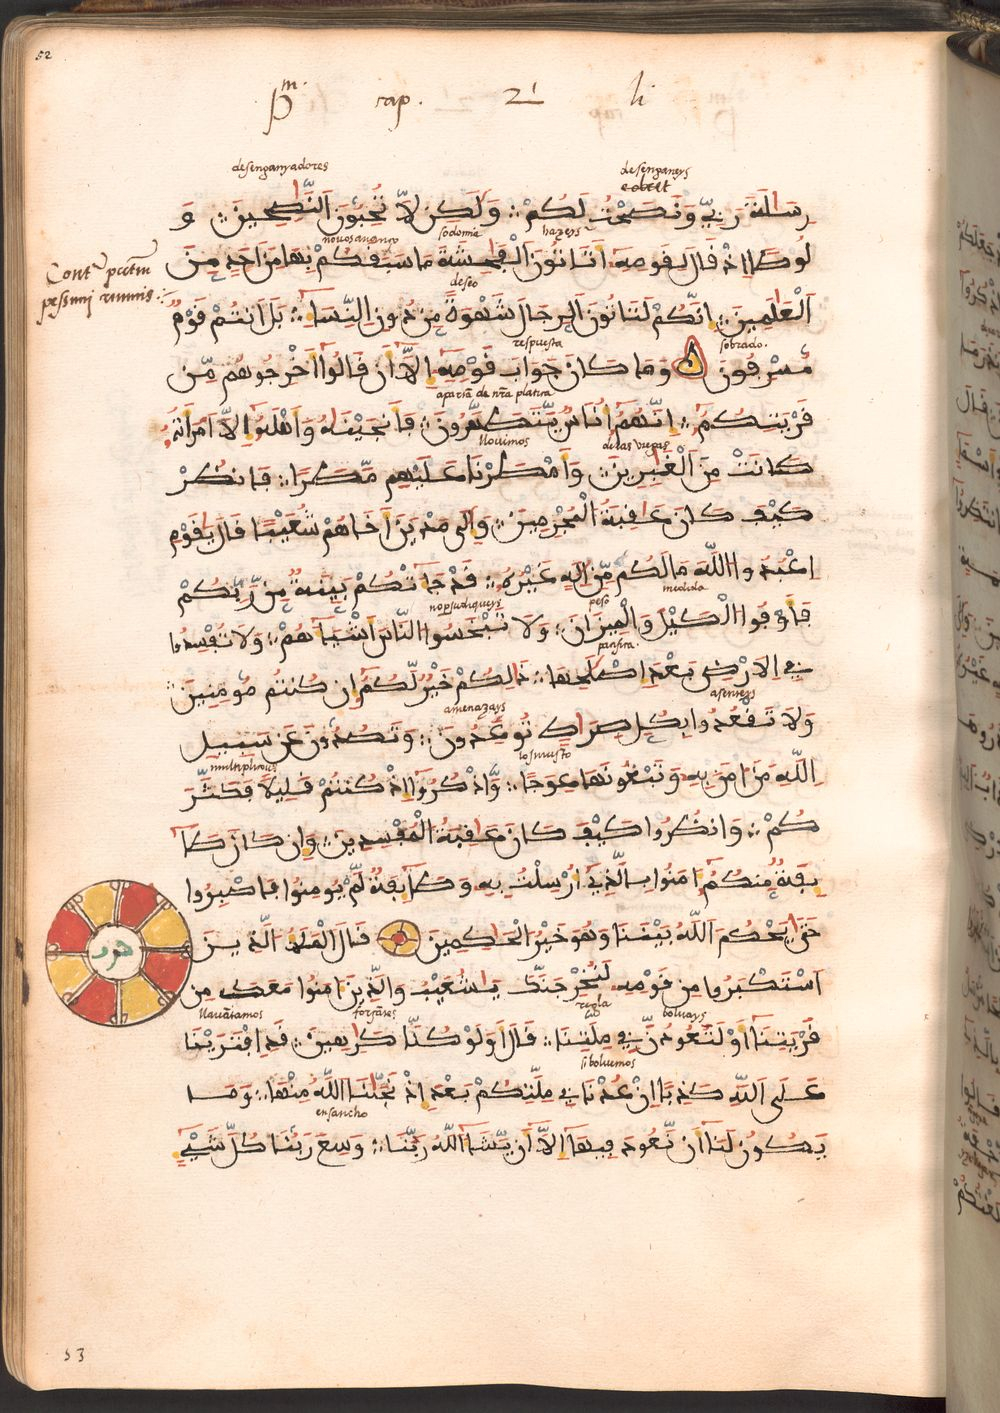 52
Pm. cap. 21 li
desenganyadores desenganeys
رسَلَةَ رَبِّي وَنَصَحْتُ لَكُمْ وَلَكِن لَّا تُحِبُّونَ النَّصِحِينَ وَ
novos avanço sodomia hazeys
لُوطًا اِذْ قَالَ لِقَوْمِهِ أَتَاتُونَ الْفَحِشَةَ مَا سَبَقَكُمْ بِهَا مِنَ اَحَدٍ مِّنَ
deseo
الْعَلَمِينَ إِنَّكُمْ لَتَاتُونَ الرِّجَالَ شَهْوَةً مِّن دُونِ النِّسَاءِ بَلَ اَنتُمْ قَوْمٌ
respuesta sobrado.
مُّسْرِفُونَ وَمَا كَانَ جَوَابَ قَوْمِهِ إِلَّا أَن قَالُوا أَخْرِجُوهُم مِّن
de nra platica
قَرْيَتِكُمُ إِنَّهُمُ أُنَاسٌ يَتَطَهَّرُونَ فَأَنجَيْنَهُ وَأَهْلَهُ إِلَّا امْرَأَتَهُ
llovimos
كَانَتْ مِنَ الْغَبِرِينَ وَأَمْطَرْنَا عَلَيْهِم مَّطَرًا فَانظُرْ
كَيْفَ كَانَ عَقِبَةُ الْمُجْرِمِينَ وَإِلَى مَدْيَنَ أَخَاهُمْ شُعَيْبًا قَالَ يَقَوْمِ
اعْبُدُوا اللَّهَ مَا لَكُم مِّنِ الَهٍ غَيْرُهُ قَدْ جَاءَتْكُم بَيِّنَةٌ مِّن رَّبِّكُمْ
peso medida
فَأَوْفُوا الْكَيْلَ وَالْمِيزَانَ وَلَا تَبْخَسُوا النَّاسَ أَشْيَاءَهُمْ وَلَا تُفْسِدُوا
فِي الَارْضِ بَعْدَ إِصْلَحِهَا ذَلِكُمْ خَيْرٌ لَّكُمُ إِن كُنتُم مُّومِنِينَ
amenazays asenteys
وَلَا تَقْعُدُوا بِكُلِّ صِرَاطٍ تُوعِدُونَ وَتَصُدُّونَ عَن سَبِيلِ
اللَّهِ مَنَ امَنَ بِهِ وَتَبْغُونَهَا عِوَجًا وَاذْكُرُوا إِذْ كُنتُمْ قَلِيلًا فَكَثَّرَ
كُمْ وَانظُرُوا كَيْفَ كَانَ عَقِبَةُ الْمُفْسِدِينَ وَإِن كَانَ طَا
يِفَةٌ مِّنكُمُ امَنُوا بِالَّذِي أُرْسِلْتُ بِهِ وَطَايِفَةٌ لَّمْ يُومِنُوا فَاصْبِرُوا
حَتَّى يَحْكُمَ اللَّهُ بَيْنَنَا وَهُوَ خَيْرُ الْحَكِمِينَ قَالَ الْمَلَأُ الَّذِينَ
اسْتَكْبَرُوا مِن قَوْمِهِ لَنُخْرِجَنَّكَ يَشُعَيْبُ وَالَّذِينَ امَنُوا مَعَكَ مِن
قَرْيَتِنَا أَوْ لَتَعُودُنَّ فِي مِلَّتِنَا قَالَ أَوَلَوْ كُنَّا كَرِهِينَ قَدِ افْتَرَيْنَا
si boluemos
عَلَى اللَّهِ كَذِبًا اِنْ عُدْنَا فِي مِلَّتِكُمْ بَعْدَ إِذْ نَجَّنَا اللَّهُ مِنْهَا وَمَا
ensancho
يَكُونُ لَنَا أَن نَّعُودَ فِيهَا إِلَّا أَن يَّشَاءَ اللَّهُ رَبُّنَا وَسِعَ رَبُّنَا كُلَّ شَيْءٍ
53